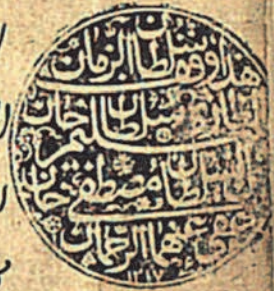 هذا وقف سلطان الزمان
الغازى سلطان سليم خان
بن السلطان مصطفى خان
عفى عنهما الرحمان
١٢١٧